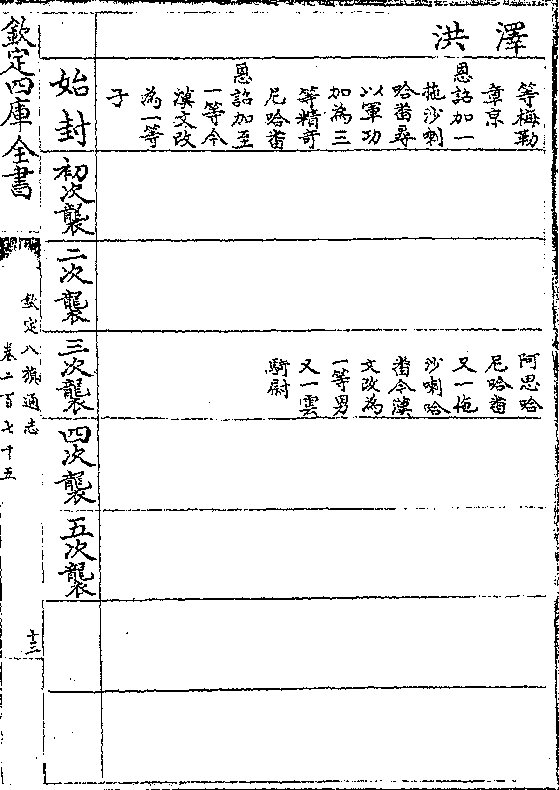 洪澤
等梅勒
章京
恩詔加一
拖沙喇
哈番尋
以軍功
加為三
等精奇
尼哈番
恩詔加至
一等今
漢文改
為一等
子
阿思哈
尼哈番
又一拖
沙喇哈
番今漢
文改為
一等男
又一雲
騎尉
始封
初次襲
二次襲
三次襲
四次襲
五次襲
欽定四庫全書
欽定八旗通志
卷二百七十五
十三